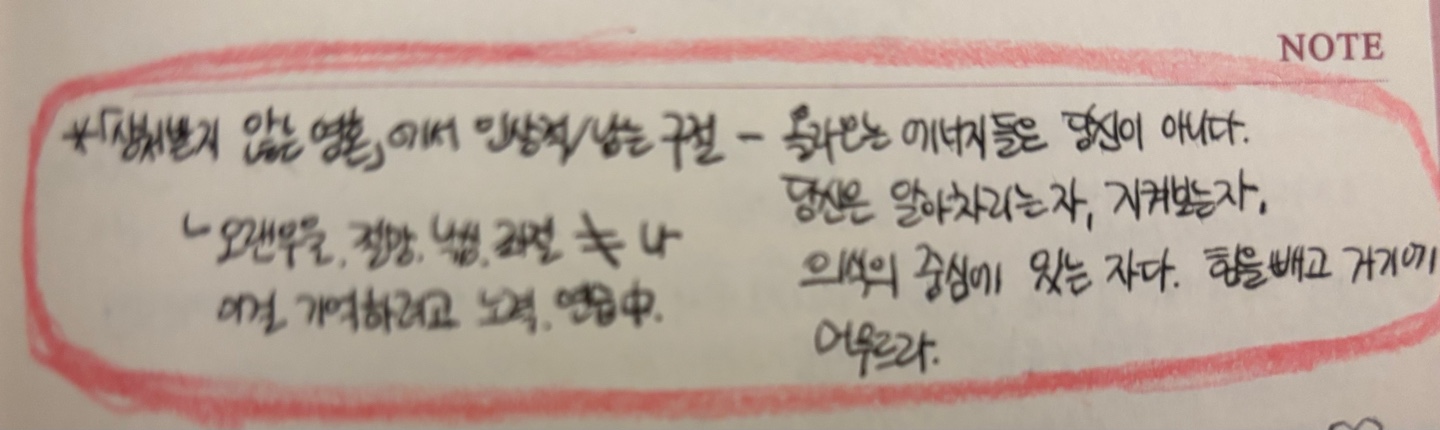 NOTE
*「상처받지 않는 영혼」에서 인상적/남는 구절 - 올라오는 에너지들은 당신이 아니다.
당신은 알아차리는 자, 지켜보는 자,
의식의 중심에 있는 자다. 힘을 빼고 거기에
머무르라.
ㄴ오랜우울, 절망, 낙심, 좌절 ≠ 나
이걸 기억하려고 노력, 연습中.